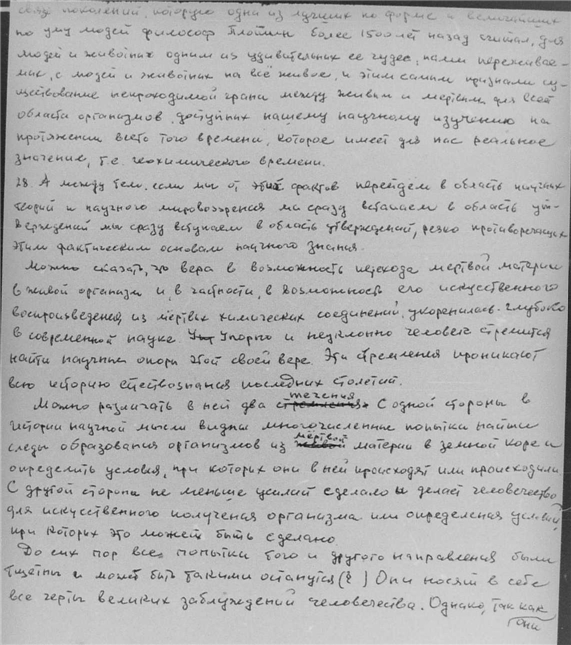 связь поколений, которую один из лучших по форме и величайших
по уму людей философ Плотин более 1500 лет назад считал, для
людей и животных одним из удивительных ее чудес, нами
с людей и животных на всё живое, и этим самым признали су-
ществование непроходимой грани между живым и мертвым для всей
области организмов, доступных нашему научному изучению на
протяжении всего того времени, которое имеет для нас реальное
значение, т.е. геохимического времени.
28. А между тем, если мы от этих фактов перейдем в область научных
теорий и научного мировоззрения мы сразу вступаем в область ут-
верждений мы сразу вступаем в область утверждений, резко противоречащих
этим фактическим основам научного знания.
Можно сказать, что вера в возможность перехода мертвой материи
в живой организм и, в частности, в возможность его искусственного
воспроизведения из мертвых химических соединений, укоренилась глубоко
в современной науке. Упорно и неуклонно человек стремится
найти научные опоры этой своей вере. Эти стремления проникают
всю историю естествознания последних столетий.
Можно различать в ней два течения. С одной стороны в
истории научной мысли видны многочисленные попытки найти
следы образования организмов из мёртвой материи в земной коре и
определить условия, при которых они в ней происходят или происходили
С другой стороны не меньше усилий сделало и делает человечество
для искусственного получения организма или определения условий,
при которых это может быть сделано
До сих пор все попытки того и другого направления были
тщетны и может быть такими останутся ( ) Они носят в себе
все черты великих заблуждений человечества. Однако, так как
они